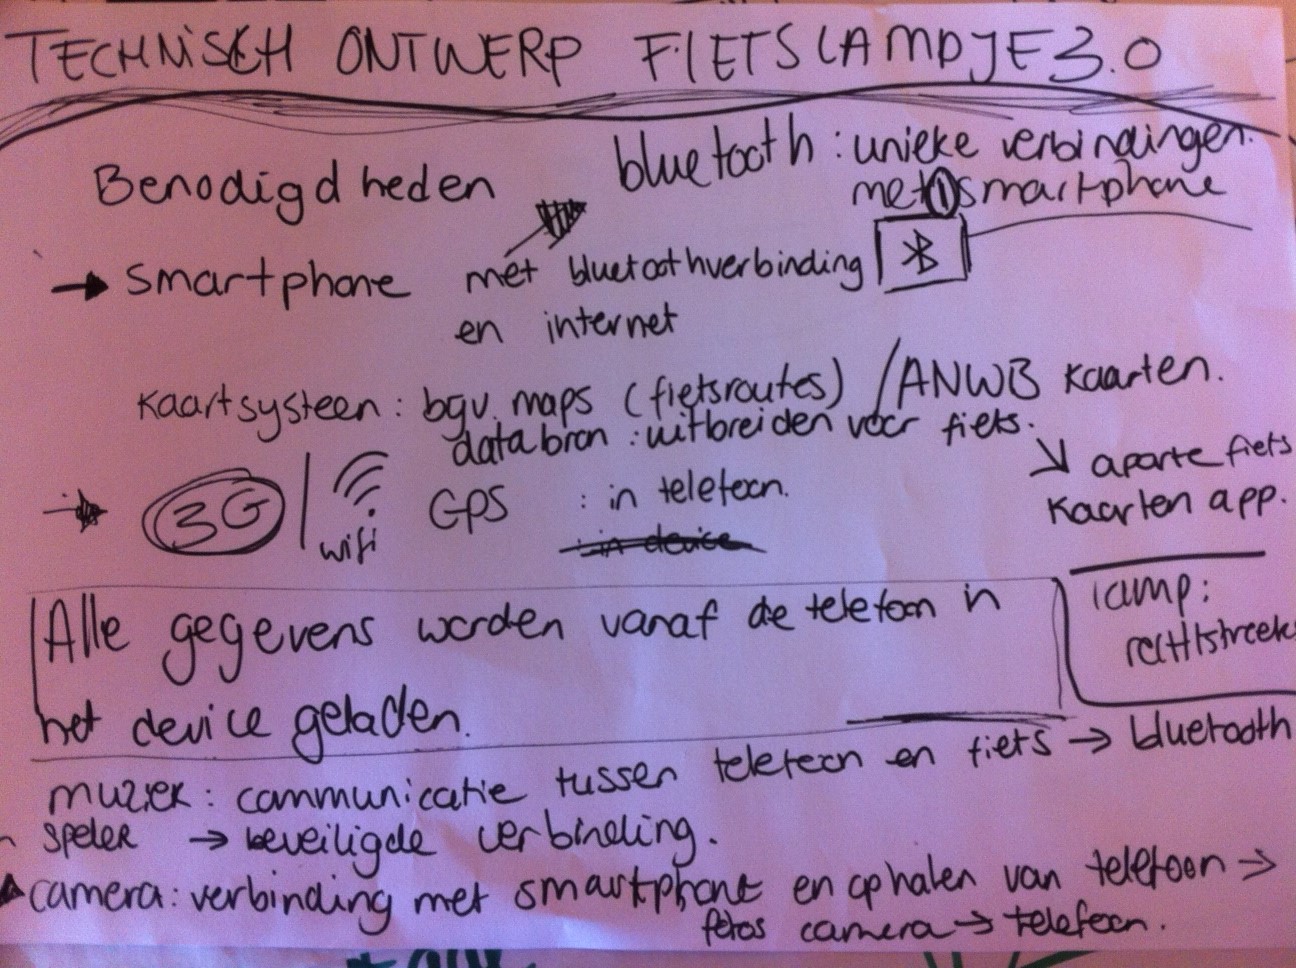 TECHNISCH ONTWERP FIETSLAMPJE 3.0
Benodigdheden
bluetooth : unieke verbindingen.
met 1 smartphone
→ smartphone met bluetoothverbinding
en internet
Kaartsysteen : bgv. maps (fietsroutes) / ANWB kaarten.
databron : uitbreiden voor fiets.
↘ aparte fiets
kaarten app.
→ 3G | wifi GPS : in telefoon.
: in device
Alle gegevens worden vanaf de telefoon in
het device geladen.
lamp:
rechtstreeks
muziek : communicatie tussen telefoon en fiets → bluetooth
speler → beveiligde verbinding.
camera : verbinding met smartphone en ophalen van telefoon →
fotos camera → telefoon.